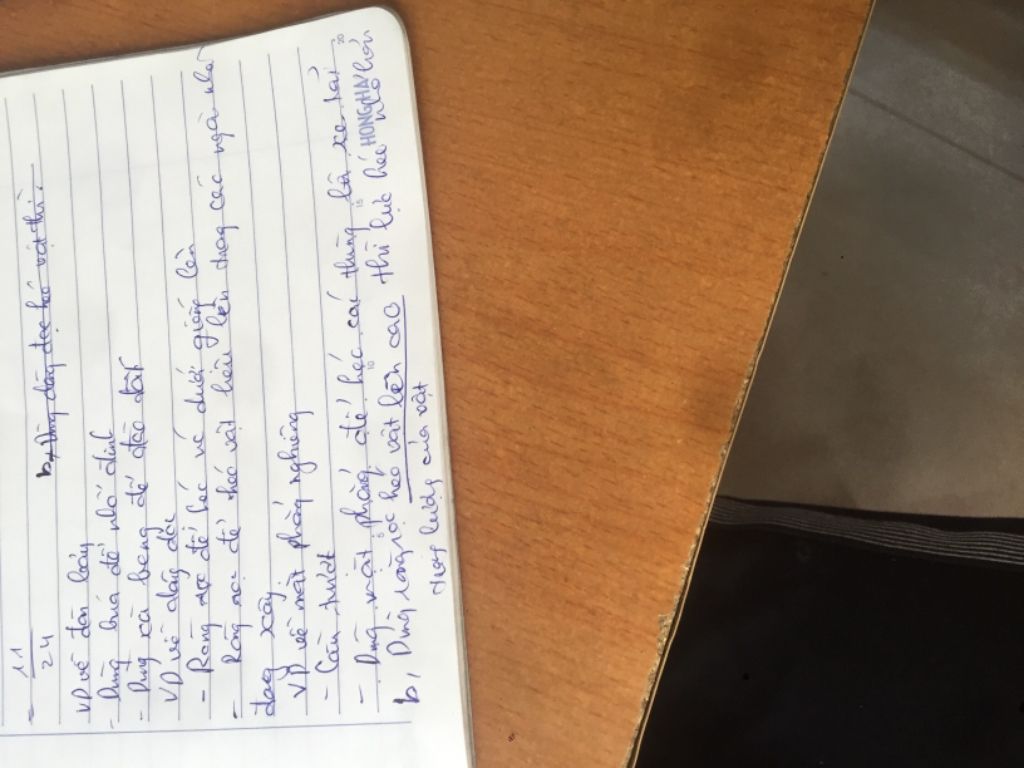 = 11/24
b, Dùng dây dọc kéo vật thì:
VD về đòn bẩy
- Dùng búa để nhổ đinh
- Dùng xà beng để đào đất
VD về dây dọc
- Ròng rọc để kéo vó dưới giếng lên
- Ròng rọc để kéo vật liệu lên trong các ngôi nhà
đag xây
VD về mặt phẳng nghiêng
- Cầu trượt
- Dùng mặt phẳng để kéo các thùng lên xe tải
b, Dùng ròng rọc kéo vật lên cao thì lực kéo nhỏ hơn
trọng lượng của vật
HONGHA